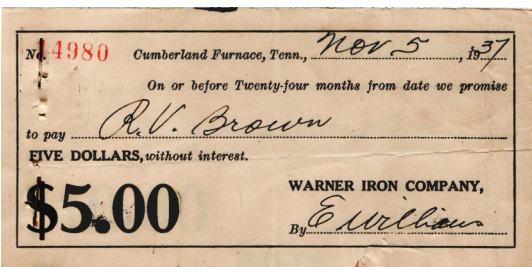 No. 14980 Cumberland Furnace, Tenn., Nov 5, 1937
On or before Twenty-four months from date we promise
to pay R.V. Brown
FIVE DOLLARS, without interest.
$5.00
WARNER IRON COMPANY,
By E Williams